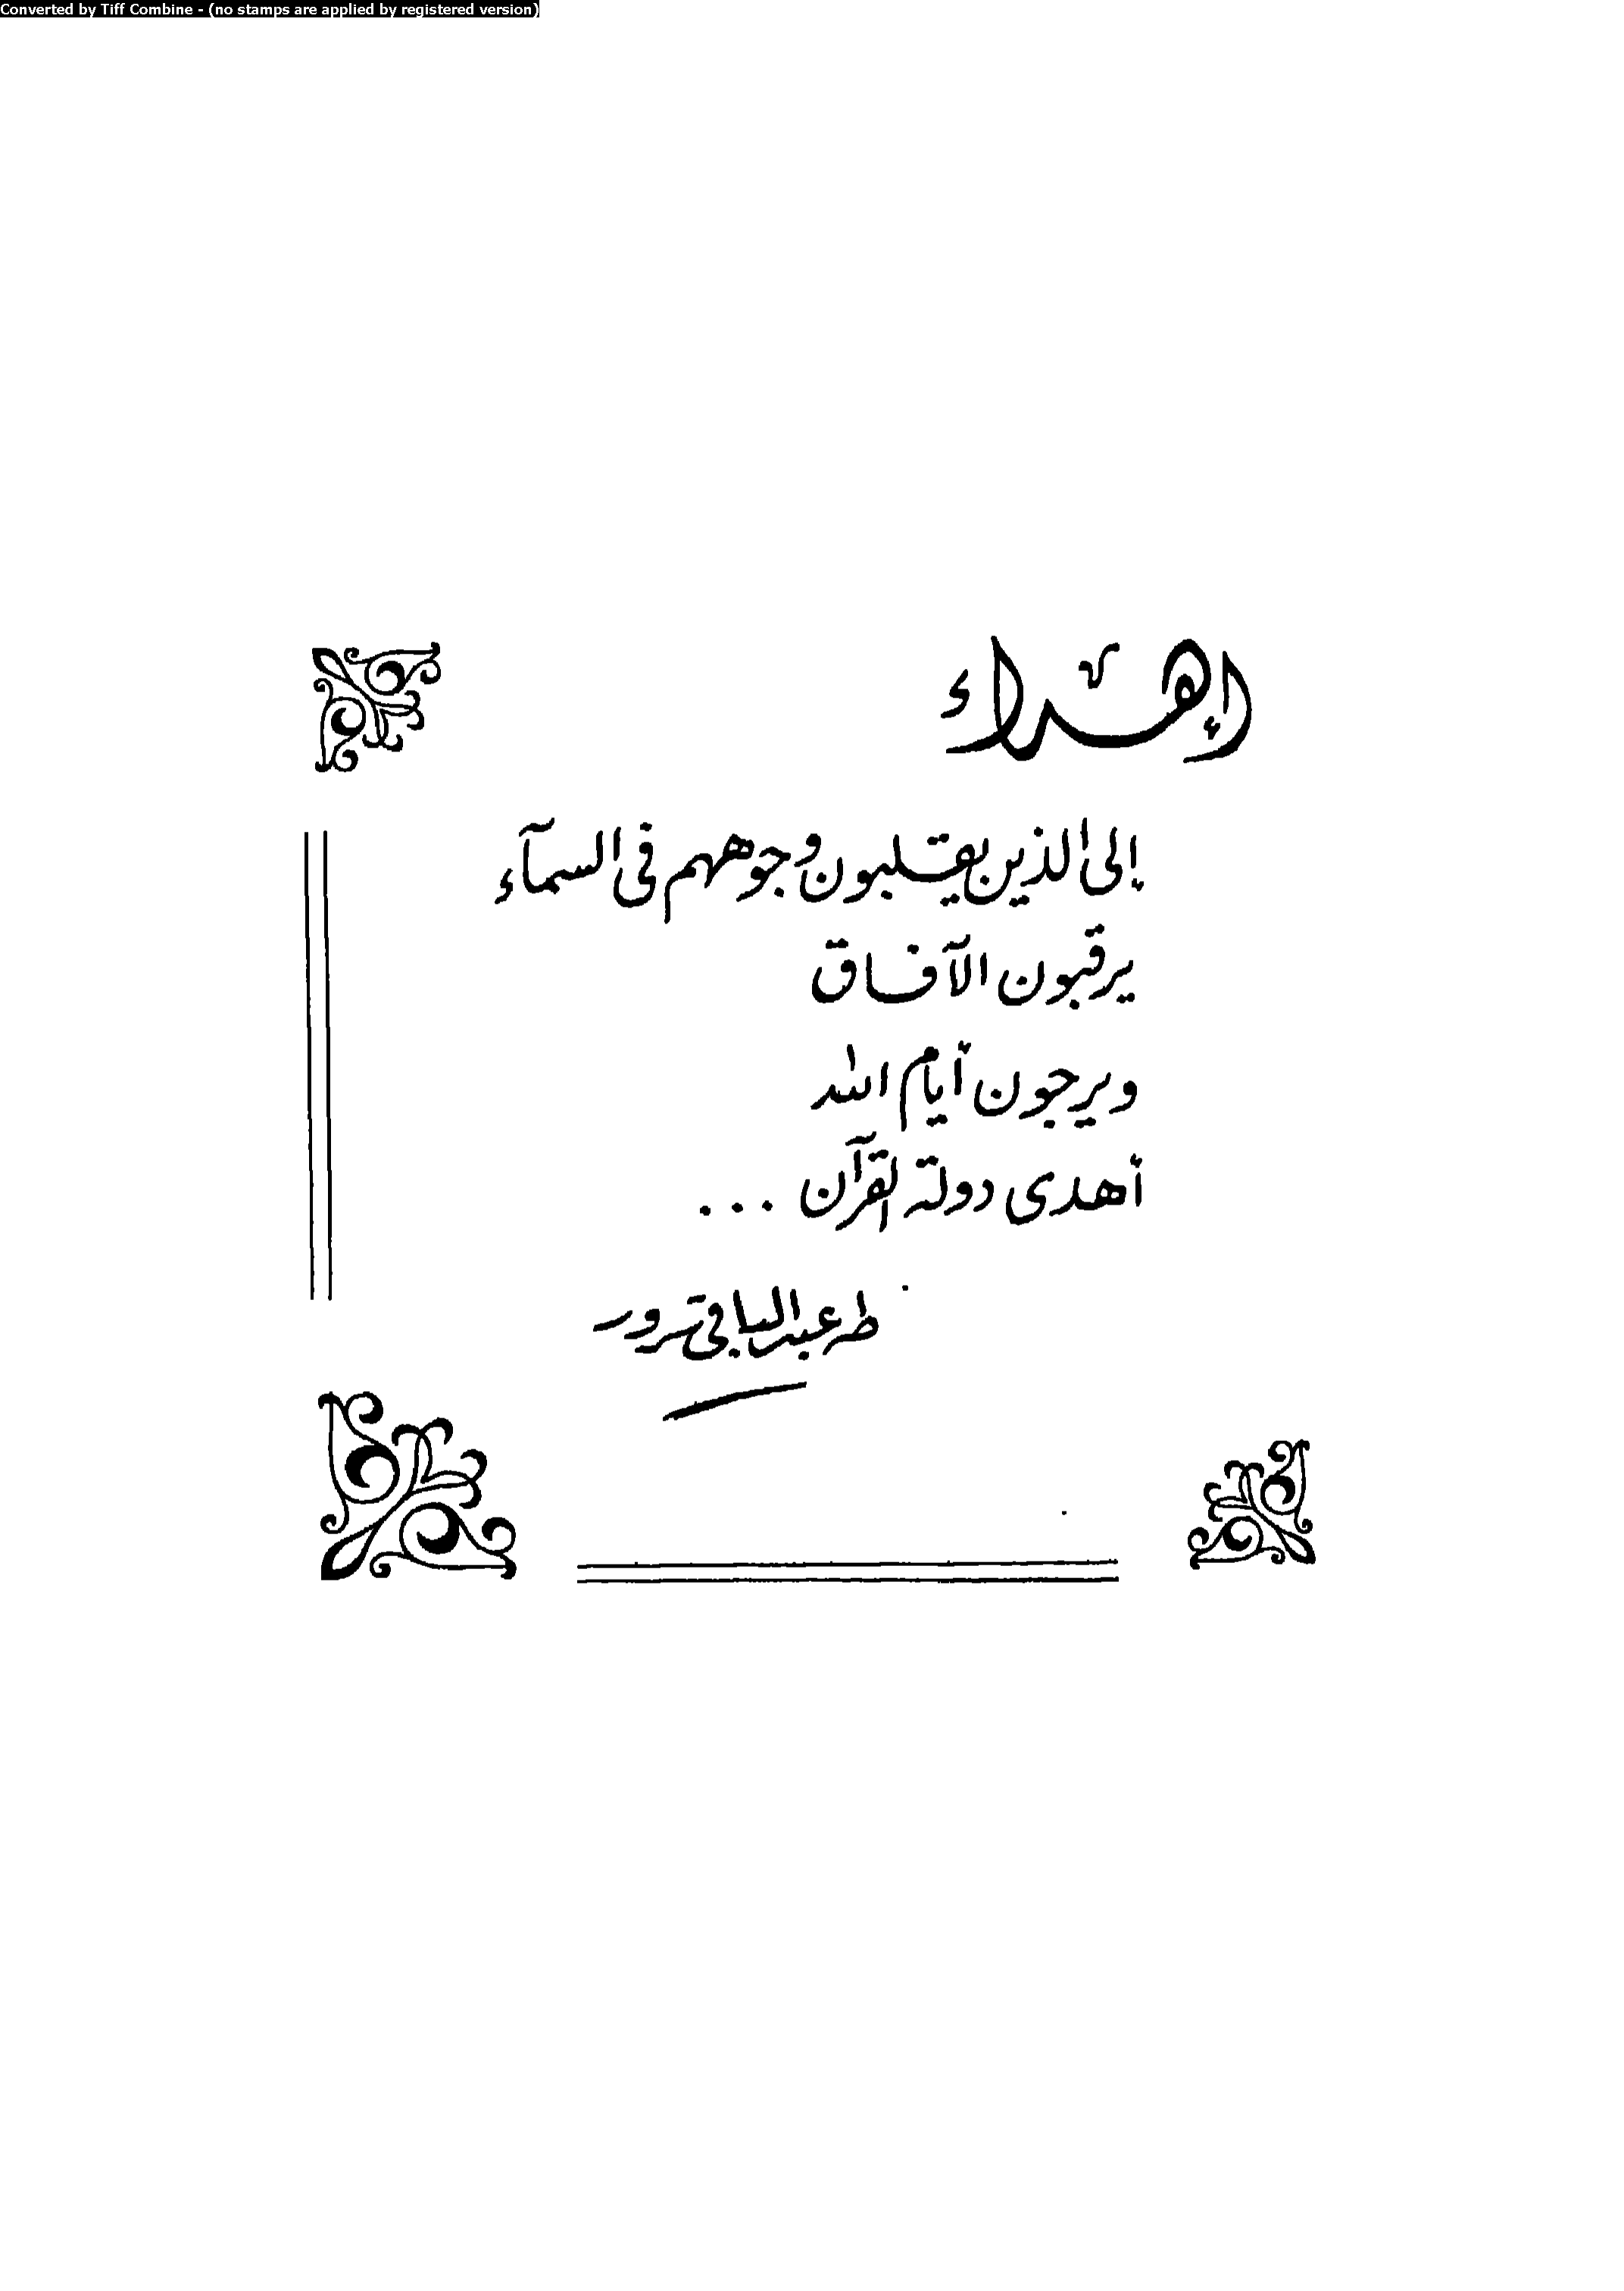 Converted by Tiff Combine - (no stamps are applied by registered version)
إهداء
إلى الذين يقلبون وجوههم فى السمآء
يرقبون الآفاق
ويرجون أيام الله
أهدى دولة القرآن ...
طه عبد الباقى سرور